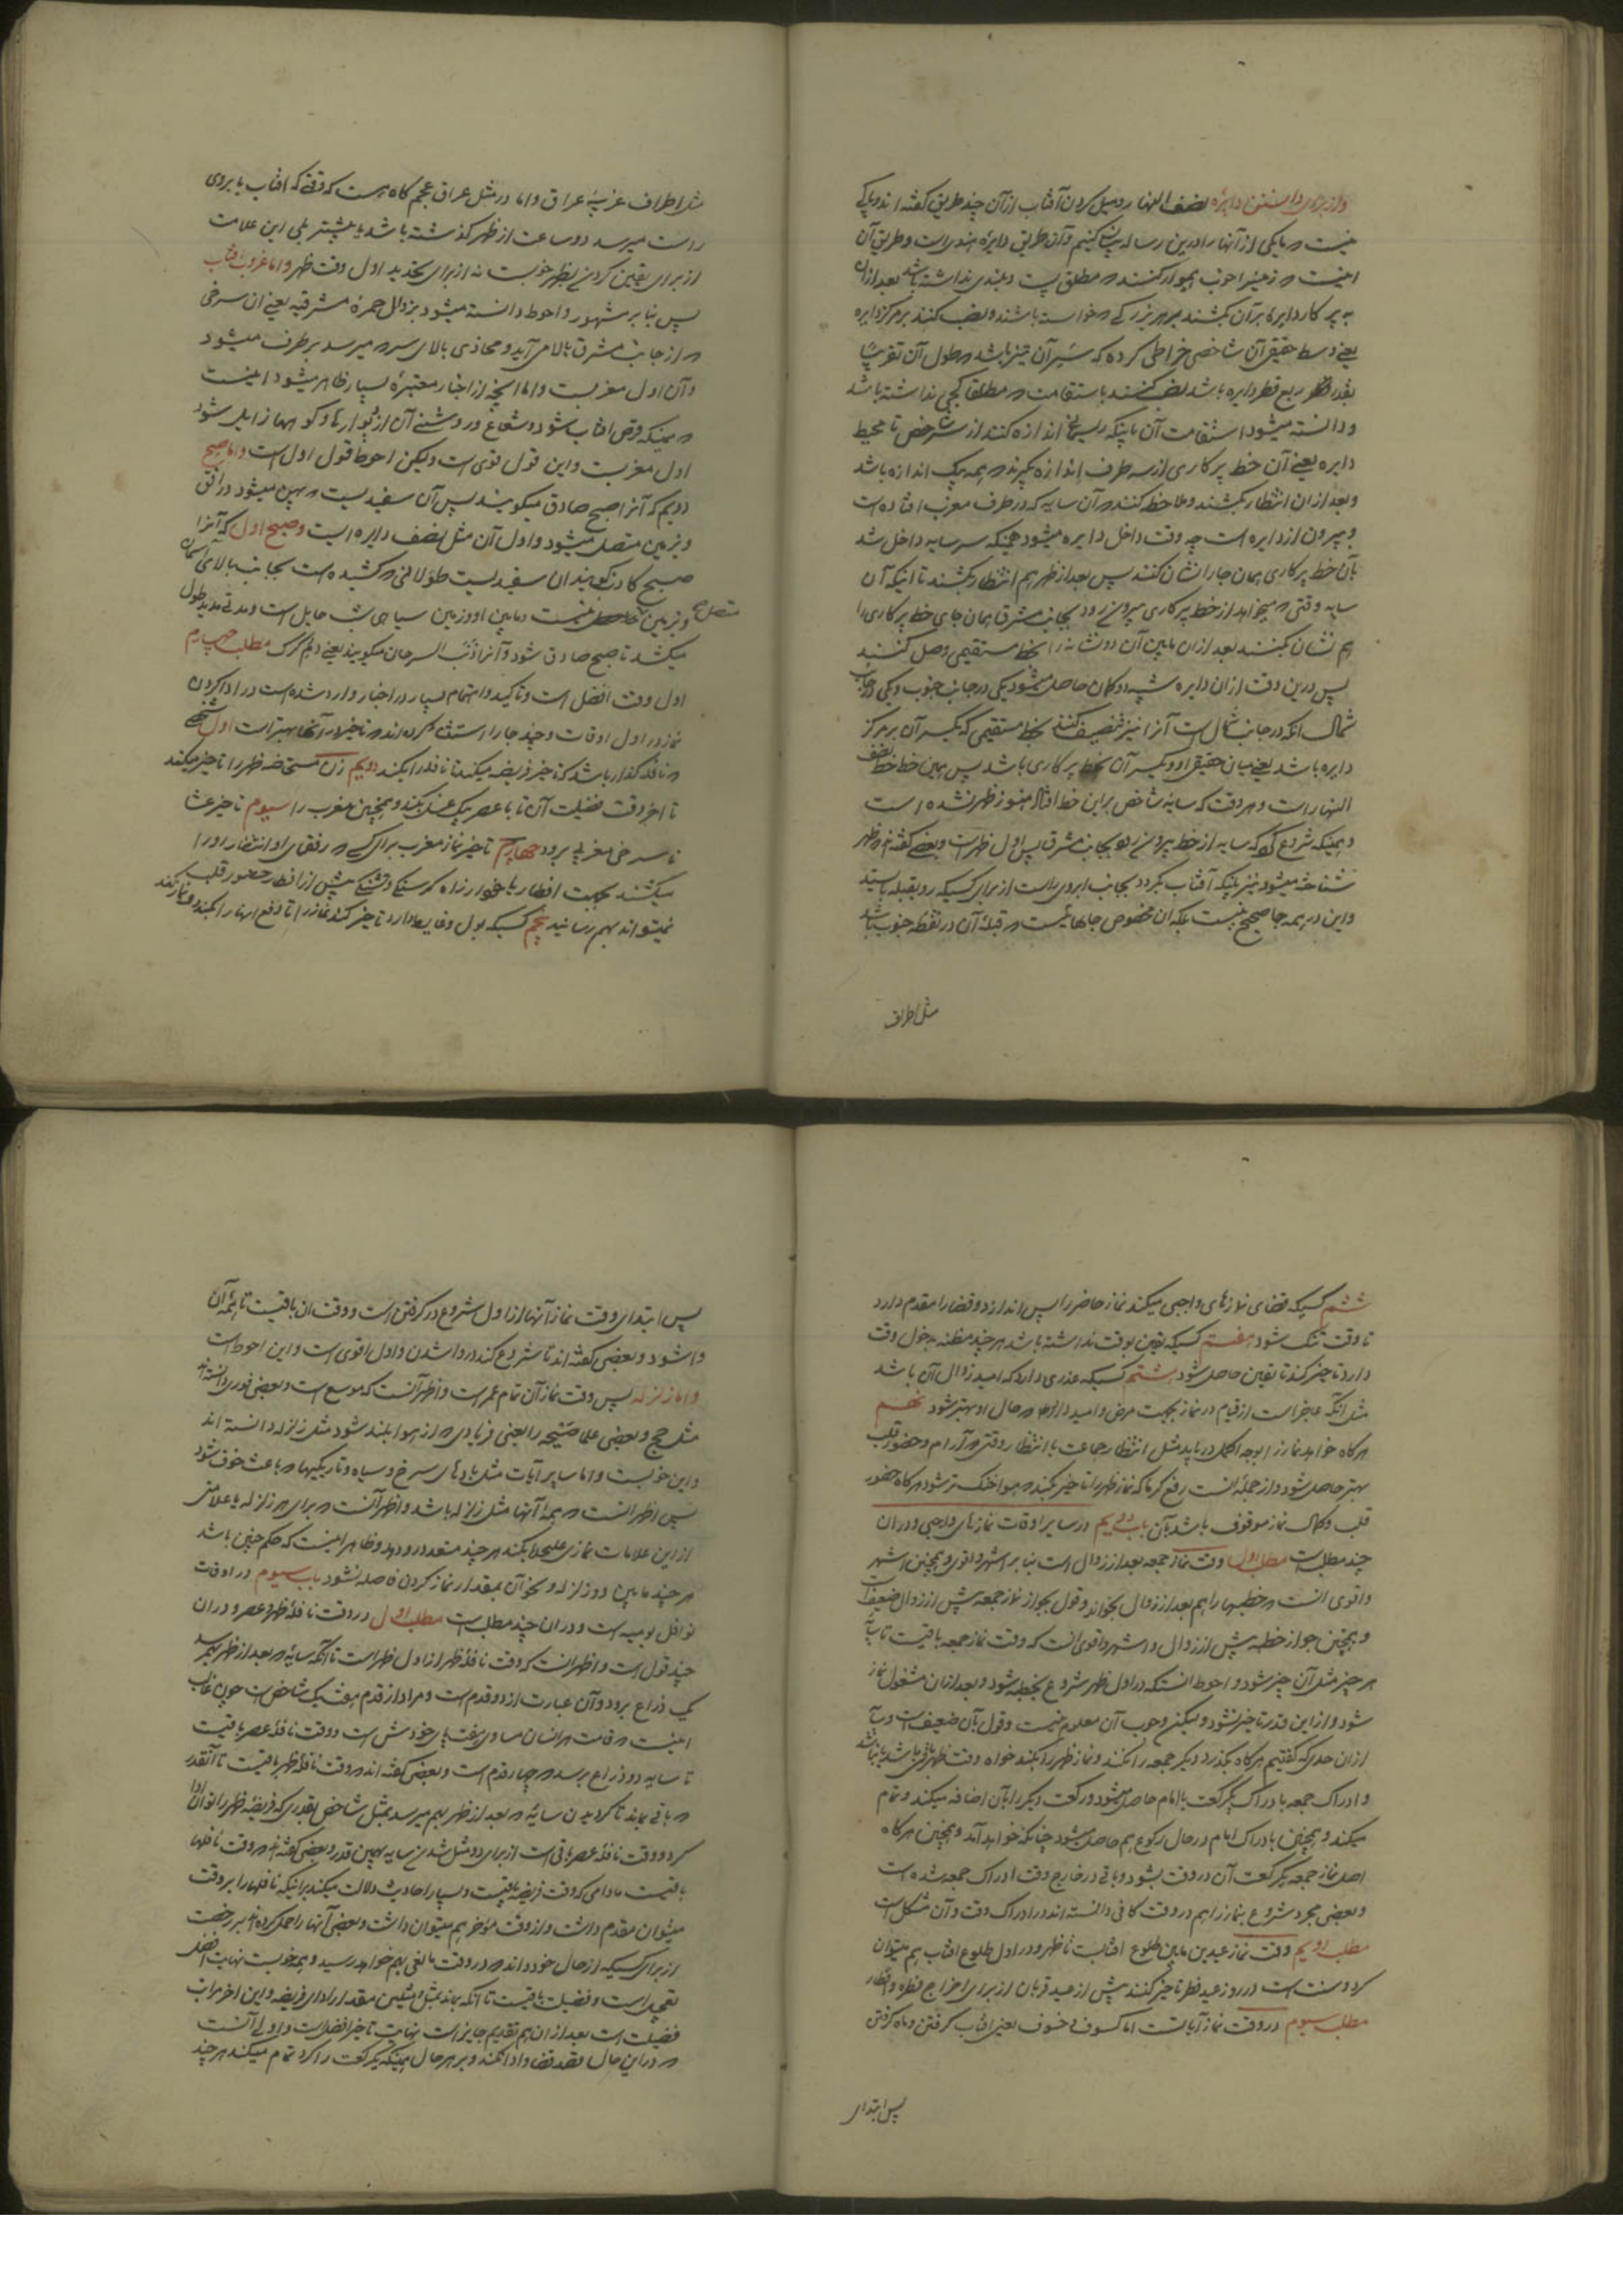 واز برای دانستن دایره نصف النهار و میل کردن آفتاب از آن چند طریق گفته اند و باکی
نیست که ما یکی از آنها را در این رساله بیان کنیم و آن طریق دایره هندیراست و طریق آن
اینست که زمینیرا خوب هموار کنند که مطلق پست و بلندی نداشته باشد بعد از ان
به پرکار دایره بر آن بکشند بهر بزرگی که خواسته باشند و نصب کنند بر مرکز دایره
یعنی وسط حقیقی آن شاخصی خراطی کرده که سر آن تیز باشد که طول آن تقریبا
بقدر ربع قطر دایره باشد نصب کنند باستقامت که مطلقا کجی نداشته باشد
و دانسته میشود استقامت آن باینکه ریسمانی اندازه کنند از سر شاخص تا محیط
دایره یعنی آن خط پرکاری از سه طرف اندازه بگیرند که همه یک اندازه باشد
و بعد از ان انتظار بکشند و ملاحظه کنند که آن سایه که در طرف مغرب افتاده است
و بیرون از دایره است چه وقت داخل دایره میشود همینکه سر سایه داخل شد
بآن خط پرکاری همان جا را نشان کنند پس بعد از ظهر هم انتظار بکشند تا اینکه آن
سایه وقتی که میخواهد از خط پرکاری بیرون رود بجانب مشرق همان جای خط پرکاری را
هم نشان بکنند بعد از ان مابین آن دو نشانه را بخط مستقیمی وصل کنند
پس درین وقت از ان دایره شبیه دو کمان حاصل میشود یکی در جانب جنوب و یکی در جانب
شمال آنکه در جانب شمال است آنرا نیز تنصیف کنند بخط مستقیمی که یکسر آن بر مرکز
دایره باشد یعنی میان حقیقی او و یکسر آن بخط پرکاری باشد پس همین خط خط نصف
النهار است و هر وقت که سایه شاخص بر این خط افتاد هنوز ظهر نشده است
و همینکه شروع کرد که سایه از خط بیرون رود بجانب مشرق پس اول ظهر است و بعضی گفته اند که ظهر
شناخته میشود نیز باینکه آفتاب بگردد بجانب ابروی راست از برای کسیکه رو بقبله بایستد
و این در همه جا صحیح نیست بلکه ان مخصوص جاهائیست که قبله آن در نقطه جنوب باشد
مثل اطراف
مثل اطراف غربیه عراق و اما در مثل عراق عجم گاه هست که وقتی که افتاب با بروی
راست میرسد دو ساعت از ظهر گذشته باشد یا بیشتر بلی این علامت
از برای یقین کردن بظهر خوبست نه از برای تحدید اول وقت ظهر و اما غروب افتاب
پس بنا بر مشهور و احوط دانسته میشود بزوال حمرهٔ مشرقیه یعنی ان سرخی
که از جانب مشرق بالا می آید و محاذی بالای سر که میرسد بر طرف میشود
و آن اول مغربست و اما انچه از اخبار معتبره بسیار ظاهر میشود اینست
که همینکه قرص افتاب بشود و شعاع و روشنی آن از دیوارها و کوهها زایل شود
اول مغربست و این قول قوی است ولیکن احوط قول اول است و اما صبح
دویم که آنرا صبح صادق میگویند پس آن سفیدیست که پهن میشود در افق
و بزمین متصل میشود و اول آن مثل نصف دایره ایست و صبح اول که آنرا
صبح کاذب گویند ان سفیدیست طولانی که کشیده است بجانب بالای آسمان
و بزمین متصل نیست و مابین او و زمین سیاهی شب حایل است و مدتی مدید طول
متصل صح
میکشد تا صبح صادق شود و آنرا ذنب السرحان میگویند یعنی دم گرگ مطلب چهارم
اول وقت افضل است و تاکید و اهتمام بسیار در اخبار وارد شده است در ادا کردن
نماز در اول اوقات و چند جا را استثنا کرده اند که تاخیر در آنها بهتر است اول شخصی
که نافله گذار باشد که تاخیر فریضه میکند تا نافله را بکند دویم زن مستحاضه ظهر را تاخیر میکند
تا اخر وقت فضیلت آن تا با عصر بیک غسل بکند و همچنین مغرب را سیوم تاخیر عشا
تا سرخی مغربی برود چهارم تاخیر نماز مغرب برای کسی که رفقای او انتظار او را
میکشند بجهت افطار یا خود از راه گرسنگی و تشنگی پیش از افطار حضور قلب
نمیتواند بهم رسانید پنجم کسیکه بول و غایط دارد تاخیر کند نماز را تا دفع اینها را بکند و نماز کند
ششم کسیکه قضای نمازهای واجبی میکند نماز حاضر را پس اندازد و قضا را مقدم دارد
تا وقت تنگ شود هفتم کسیکه یقین بوقت نداشته باشد هر چند مظنه بدخول وقت
دارد تاخیر کند تا یقین حاصل شود هشتم کسیکه عذری دارد که امید زوال آن باشد
مثل انکه عاجز است از قیام در نماز بجهت مرض و امید دارد که حال او بهتر شود نهم
هر گاه خواهد نماز را بوجه اکمل دریابد مثل انتظار جماعت یا انتظار وقتی که آرام و حضور قلب
بهتر حاصل شود و از جمله انست رفع گرما که نماز ظهر را تاخیر بکند که هوا خنک تر شود هر گاه حضور
قلب و کمال نماز موقوف باشد بآن باب دویم در سایر اوقات نمازهای واجبی و دران
چند مطلبست مطلب اول وقت نماز جمعه بعد از زوال است بنا بر اشهر و اقوی و همچنین اشهر
و اقوی انست که خطبها را هم بعد از زوال بخواند و قول بجواز نماز جمعه پیش از زوال ضعیف است
و همچنین جواز خطبه پیش از زوال و اشهر و اقوی انست که وقت نماز جمعه باقیست تا سایه
هر چیز مثل آن چیز شود و احوط انستکه در اول ظهر شروع بخطبه شود و بعد از ان مشغول نماز
شود و از این قدر تاخیر نشود ولیکن وجوب آن معلوم نیست و قول بآن ضعیف است و
از ان حدی که گفتیم هر گاه بگذرد دیگر جمعه را نکند و نماز ظهر را بکند خواه وقت ظهر باقی باشد یا نباشد
و ادراک جمعه بادراک یکرکعت با امام حاصل میشود و رکعت دیگر را بآن اضافه میکند و تمام
میکند و همچنین بادراک امام در حال رکوع هم حاصل میشود چنانکه خواهد آمد و همچنین هر گاه
اصل نماز جمعه یکرکعت آن در وقت بشود و باقی در خارج وقت ادراک جمعه شده است
و بعضی مجرد شروع بنماز را هم در وقت کافی دانسته اند در ادراک وقت و آن مشکل است
مطلب دویم وقت نماز عیدین مابین طلوع افتابست تا ظهر و در اول طلوع افتاب هم میتوان
کرد و سنت است در روز عید فطر تاخیر کنند پیش از عید قربان از برای اخراج فطره و افطار
مطلب سیوم در وقت نماز آیاتست اما کسوف و خسوف یعنی افتاب گرفتن و ماه گرفتن
پس ابتدای
پس ابتدای وقت نماز آنها از اول شروع در گرفتن است و وقت ان باقیست تا همه آن
وا شود و بعضی گفته اند تا شروع کند در وا شدن و اول اقوی است و این احوط است
و اما زلزله پس وقت نماز آن تمام عمر است و اظهر آنست که موسع است و بعضی فوری دانسته اند
مثل حج و بعضی علما صیحه را یعنی فریادی که از هوا بلند شود مثل زلزله دانسته اند
و این خوبست و اما سایر آیات مثل بادهای سرخ و سیاه و تاریکیها که باعث خوف شود
پس اظهر انست که همه آنها مثل زلزله باشد و اظهر آنست که برای هر زلزله یا علامتی
از این علامات نمازی علیحده بکند هر چند متعدد رو دهد و ظاهر اینست که حکم چنین باشد
هر چند مابین دو زلزله و نحو آن بمقدار نماز کردن فاصله نشود باب سیوم در اوقات
نوافل یومیه است و دران چند مطلب است مطلب اول در وقت نافلهٔ ظهر و عصر و دران
چند قول است و اظهر انست که وقت نافلهٔ ظهر از اول ظهر است تا آنکه سایه که بعد از ظهر بهم رسد
یک ذراع برود و آن عبارت از دو قدم است و مراد از قدم هفت یک شاخص است چون غالب
اینست که قامت هر انسان مساوی هفت پای خودش است و وقت نافلهٔ عصر باقیست
تا سایه دو ذراع برسد که چهار قدم است و بعضی گفته اند که وقت نافلهٔ ظهر باقیست تا آنقدر
که باقی بماند تا گردیدن سایهٔ که بعد از ظهر بهم میرسد بمثل شاخص بقدری که فریضه ظهر را توان ادا
کرد و وقت نافلهٔ عصر باقی است از برای دو مثل شدن سایه بهمین قدر و بعضی گفته اند که وقت نافلها
باقیست مادامی که وقت فریضه باقیست و بسیار احادیث دلالت میکند بر اینکه نافلها را بر وقت
میتوان مقدم داشت و از وقت مؤخر هم میتوان داشت و بعضی آنها را حمل کرده اند بر رخصت
از برای کسیکه از حال خود داند که در وقت مانعی بهم خواهد رسید و همه خوبست نهایت افضل
تعجیل است و فضیلت باقیست تا آنکه بماند بمثل و مثلین مقدار ادای فریضه و این اخر مراتب
فضیلت است بعد از ان هم تقدیم جایز است نهایت تاخیر افضل است و اولی آنست
که در این حال قصد قضا و ادا نکند و بر هر حال همینکه یکرکعت را کرد تمام میکند هر چند